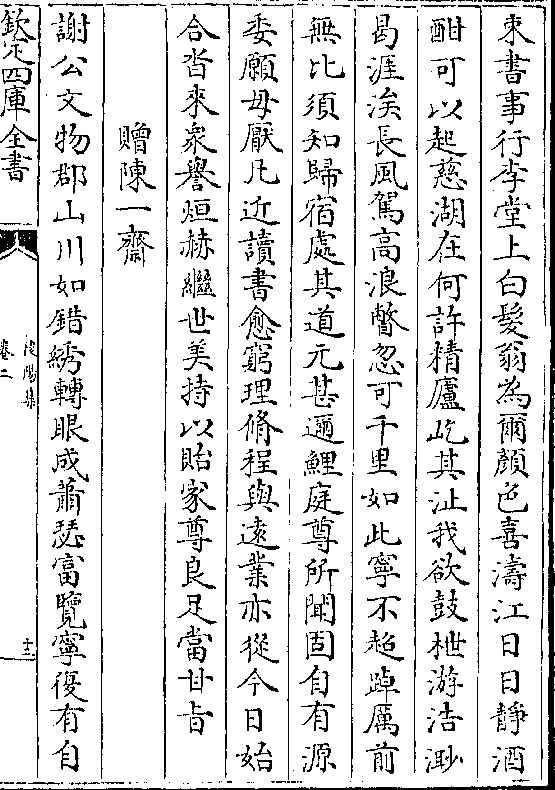 束書事行李堂上白髮翁為爾顔色喜濤江日日靜酒
酣可以起慈湖在何許精廬屹其沚我欲鼓枻游浩渺
曷涯涘長風駕高浪瞥忽可千里如此寧不超踔厲前
無比須知歸宿處其道元甚邇鯉庭尊所聞固自有源
委願毋厭凡近讀書愈窮理脩程與遠業亦從今日始
合沓來衆譽烜赫繼世美持以貽家尊良足當甘㫖
贈陳一齋
謝公文物郡山川如錯綉轉眼成蕭瑟富覽寧復有自
欽定四庫全書
陵陽集
卷二
十二